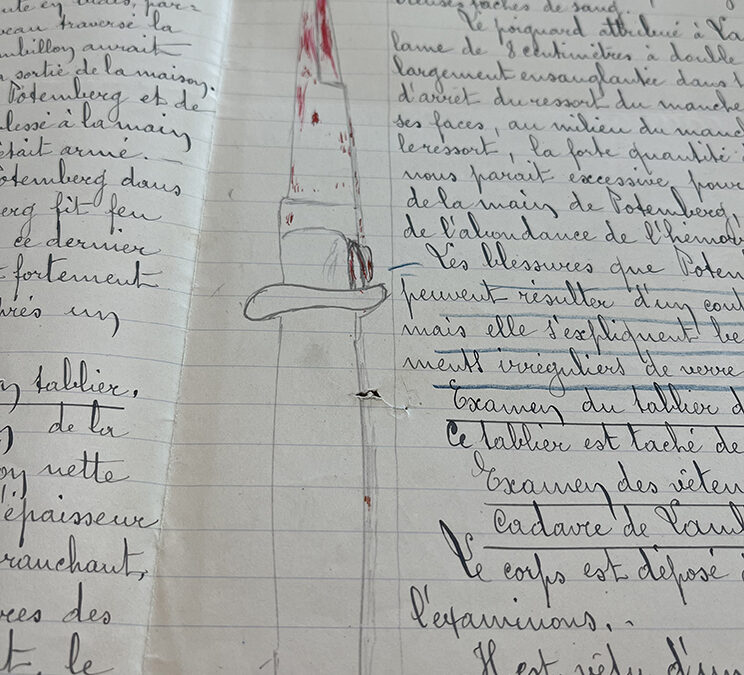 veau traversé la
aurait
sortie de la maison.
Potemberg et de
blessé à la main
était armé. —
otemberg dans
erg fit feu
ce dernier
fortement
près un
tablier.
de la
nette
l'épaisseur
tranchant,
des
le
taches de sang.
Le poignard attribué à
lame de 8 centimètres à double
largement ensanglantée dans
d'arrêt du ressort du manche
ses faces, au milieu du manc
le ressort, la forte quantité
nous parait excessive, pour
de la main de Potemberg,
de l'abondance de l'hémor
Les blessures que Poten
peuvent résulter d'un cou
mais elle s'expliquent be
ments irréguliers de verre
Examen du tablier d
Ce tablier est taché de
Examen des vêtem
Cadavre de
Le corps est déposé
l'examinons. . .
Il est vêtu d'un